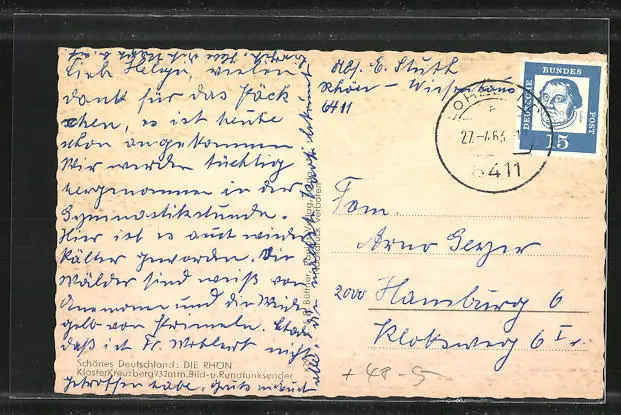 Liebe Helga, vielen
dank für das Päck
chen, es ist heute
schon angekommen
Wir werden tüchtig
hergenommen in der
Gymnastikstunde.
Hier ist es auch wieder
kälter geworden. Die
Wälder sind weiß von
Anemonen und die Wiesen
gelb von Primeln.
daß ich Fr. Wohlert nicht
getroffen habe.
Schönes Deutschland: DIE RHÖN
Kloster Kreuzberg 932m m. Bild- u. Rundfunksender
Abs. E. Stuth
Rhön - Wiesenhaus
6411
DEUTSCHE BUNDES POST
15
27.-4.63
6411
Fam.
Arno Geyer
2000 Hamburg 6
Kloksweg 6 I r.
+ 48 -5